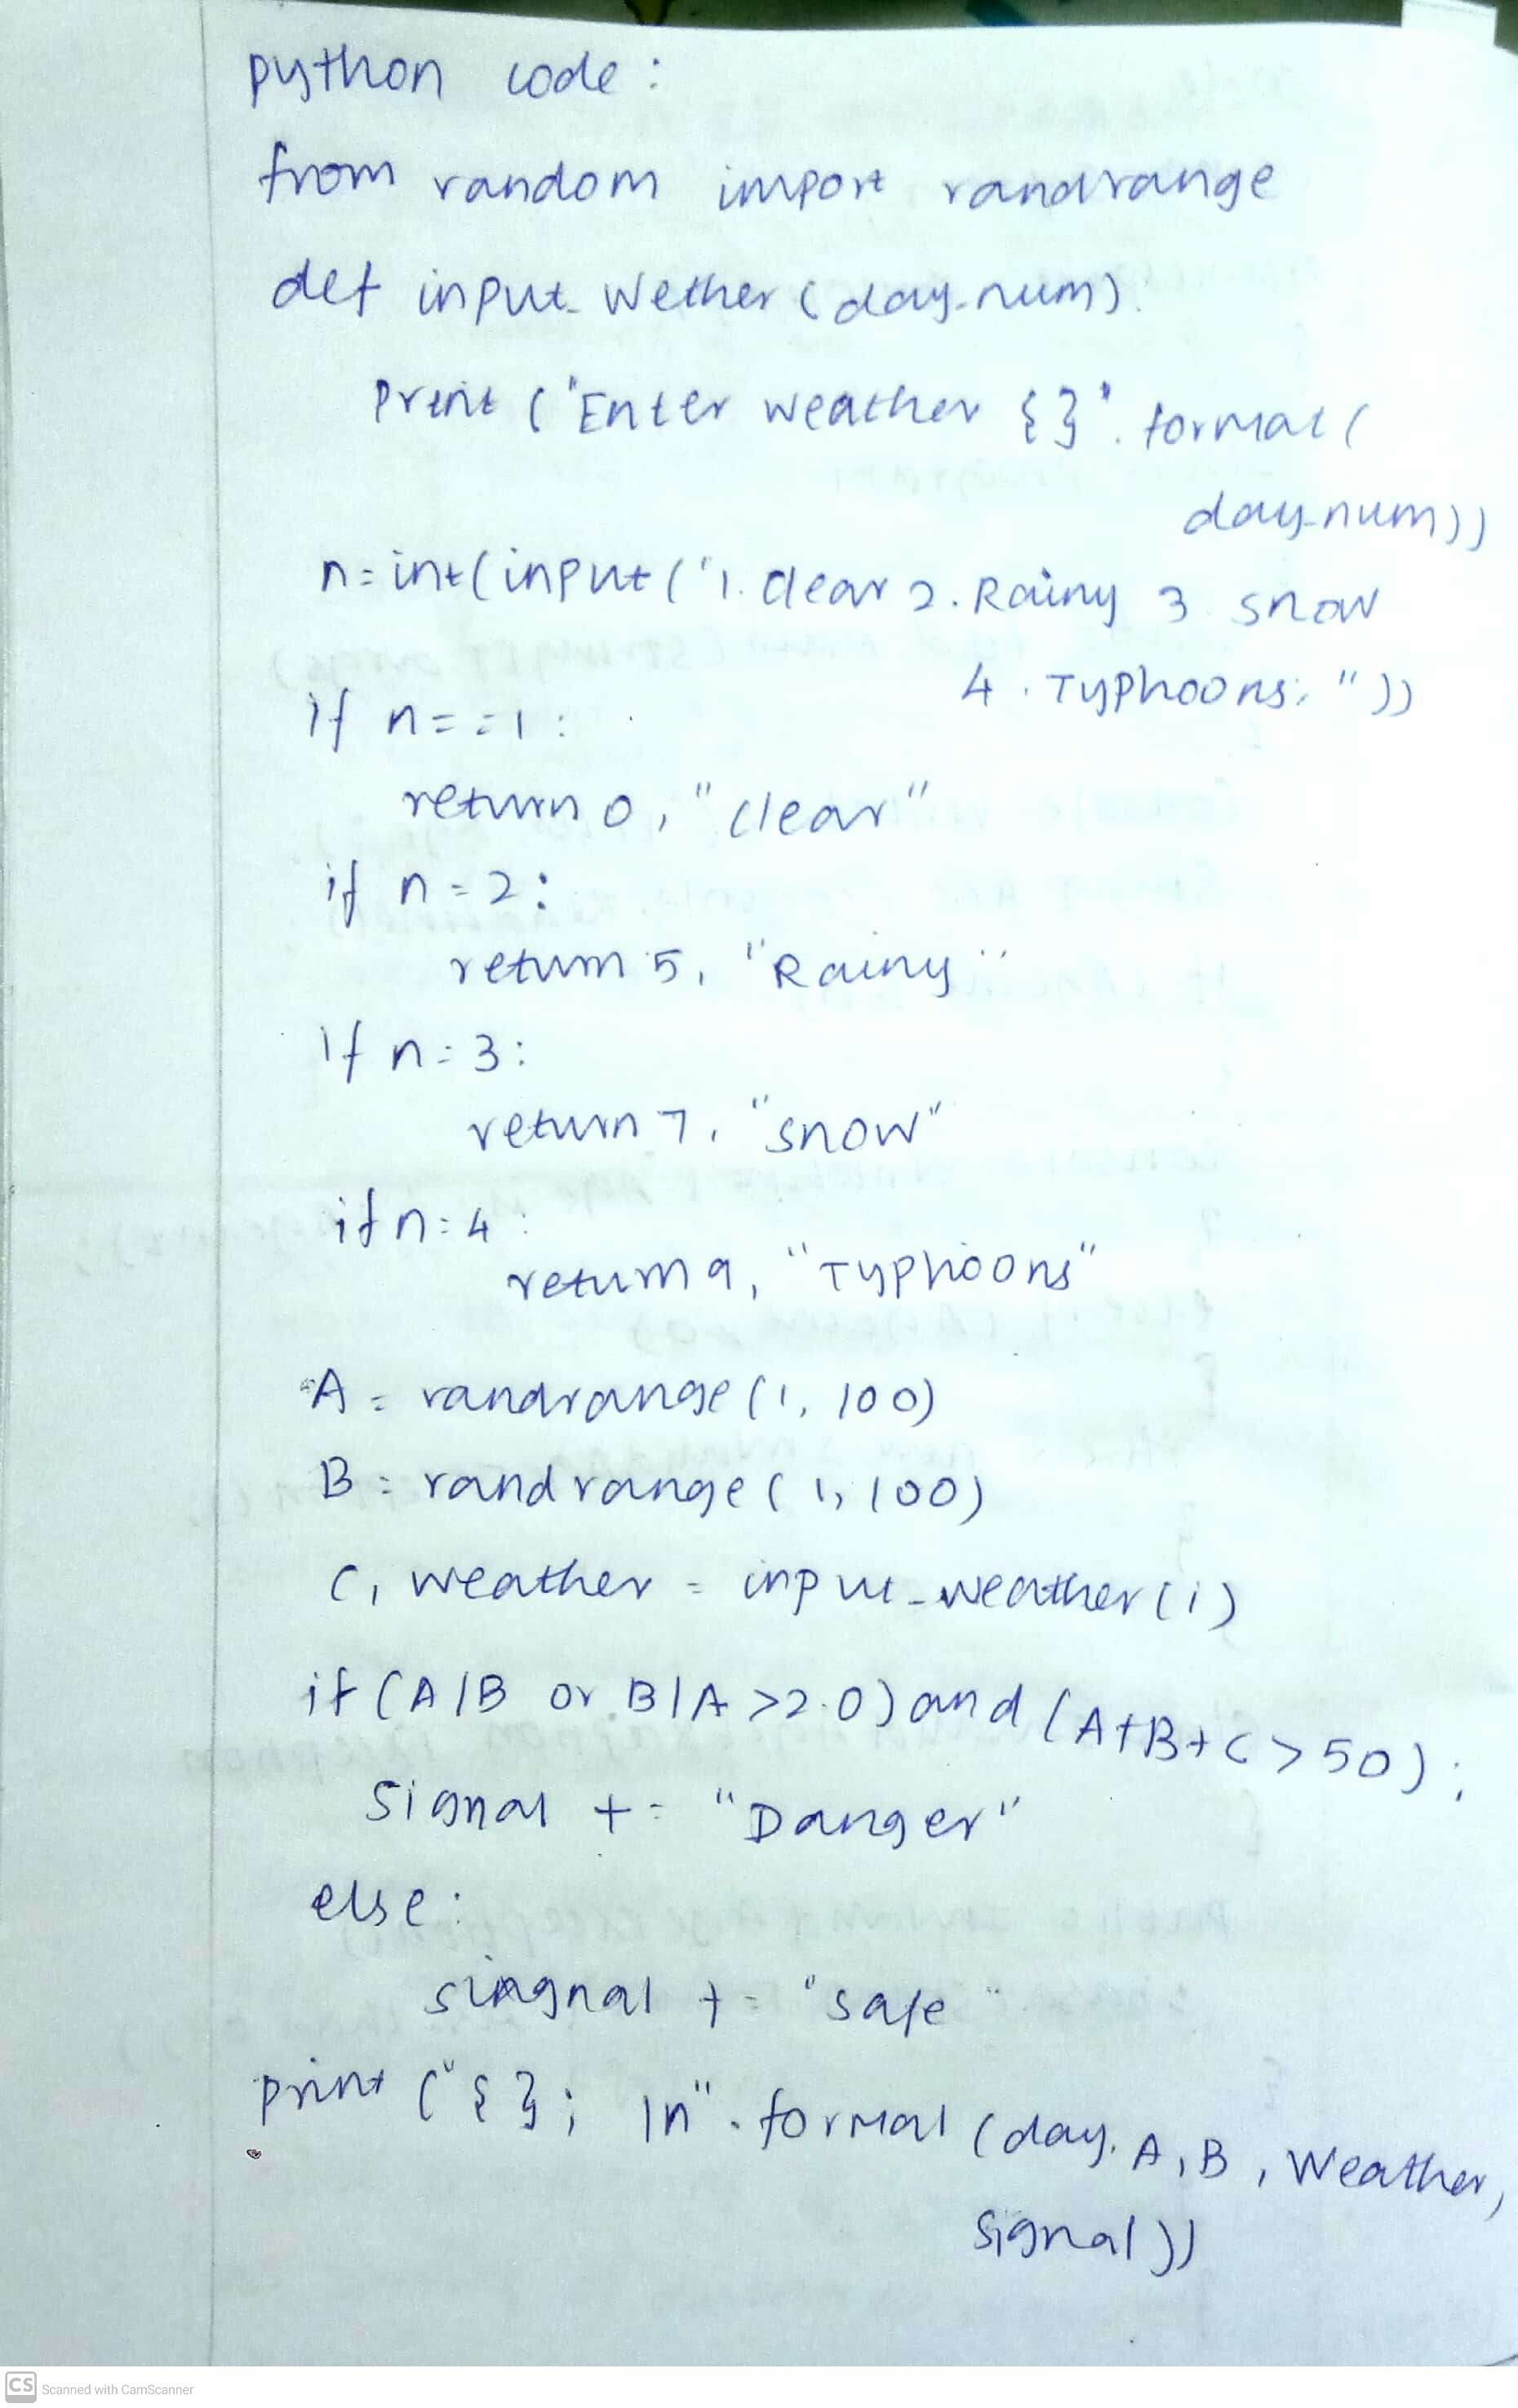 python code :
from random import randrange
def input_Wether (day_num).
Print ("Enter weather {}". format (
day_num))
n=int(input("1. clear 2. Rainy 3 snow
4. Typhoons: "))
if n==1 :
return 0, "clear"
if n=2:
return 5, "Rainy"
If n=3:
return 7, "snow"
if n=4 :
return 9, "Typhoons"
A = randrange (1, 100)
B = randrange (1, 100)
C, weather = input_weather (i)
if (A/B or B/A >2.0) and (A+B+C > 50) :
signal += "Danger"
else :
singnal += "safe"
print ("{}; \n". format (day, A, B, Weather,
signal))
CS Scanned with CamScanner